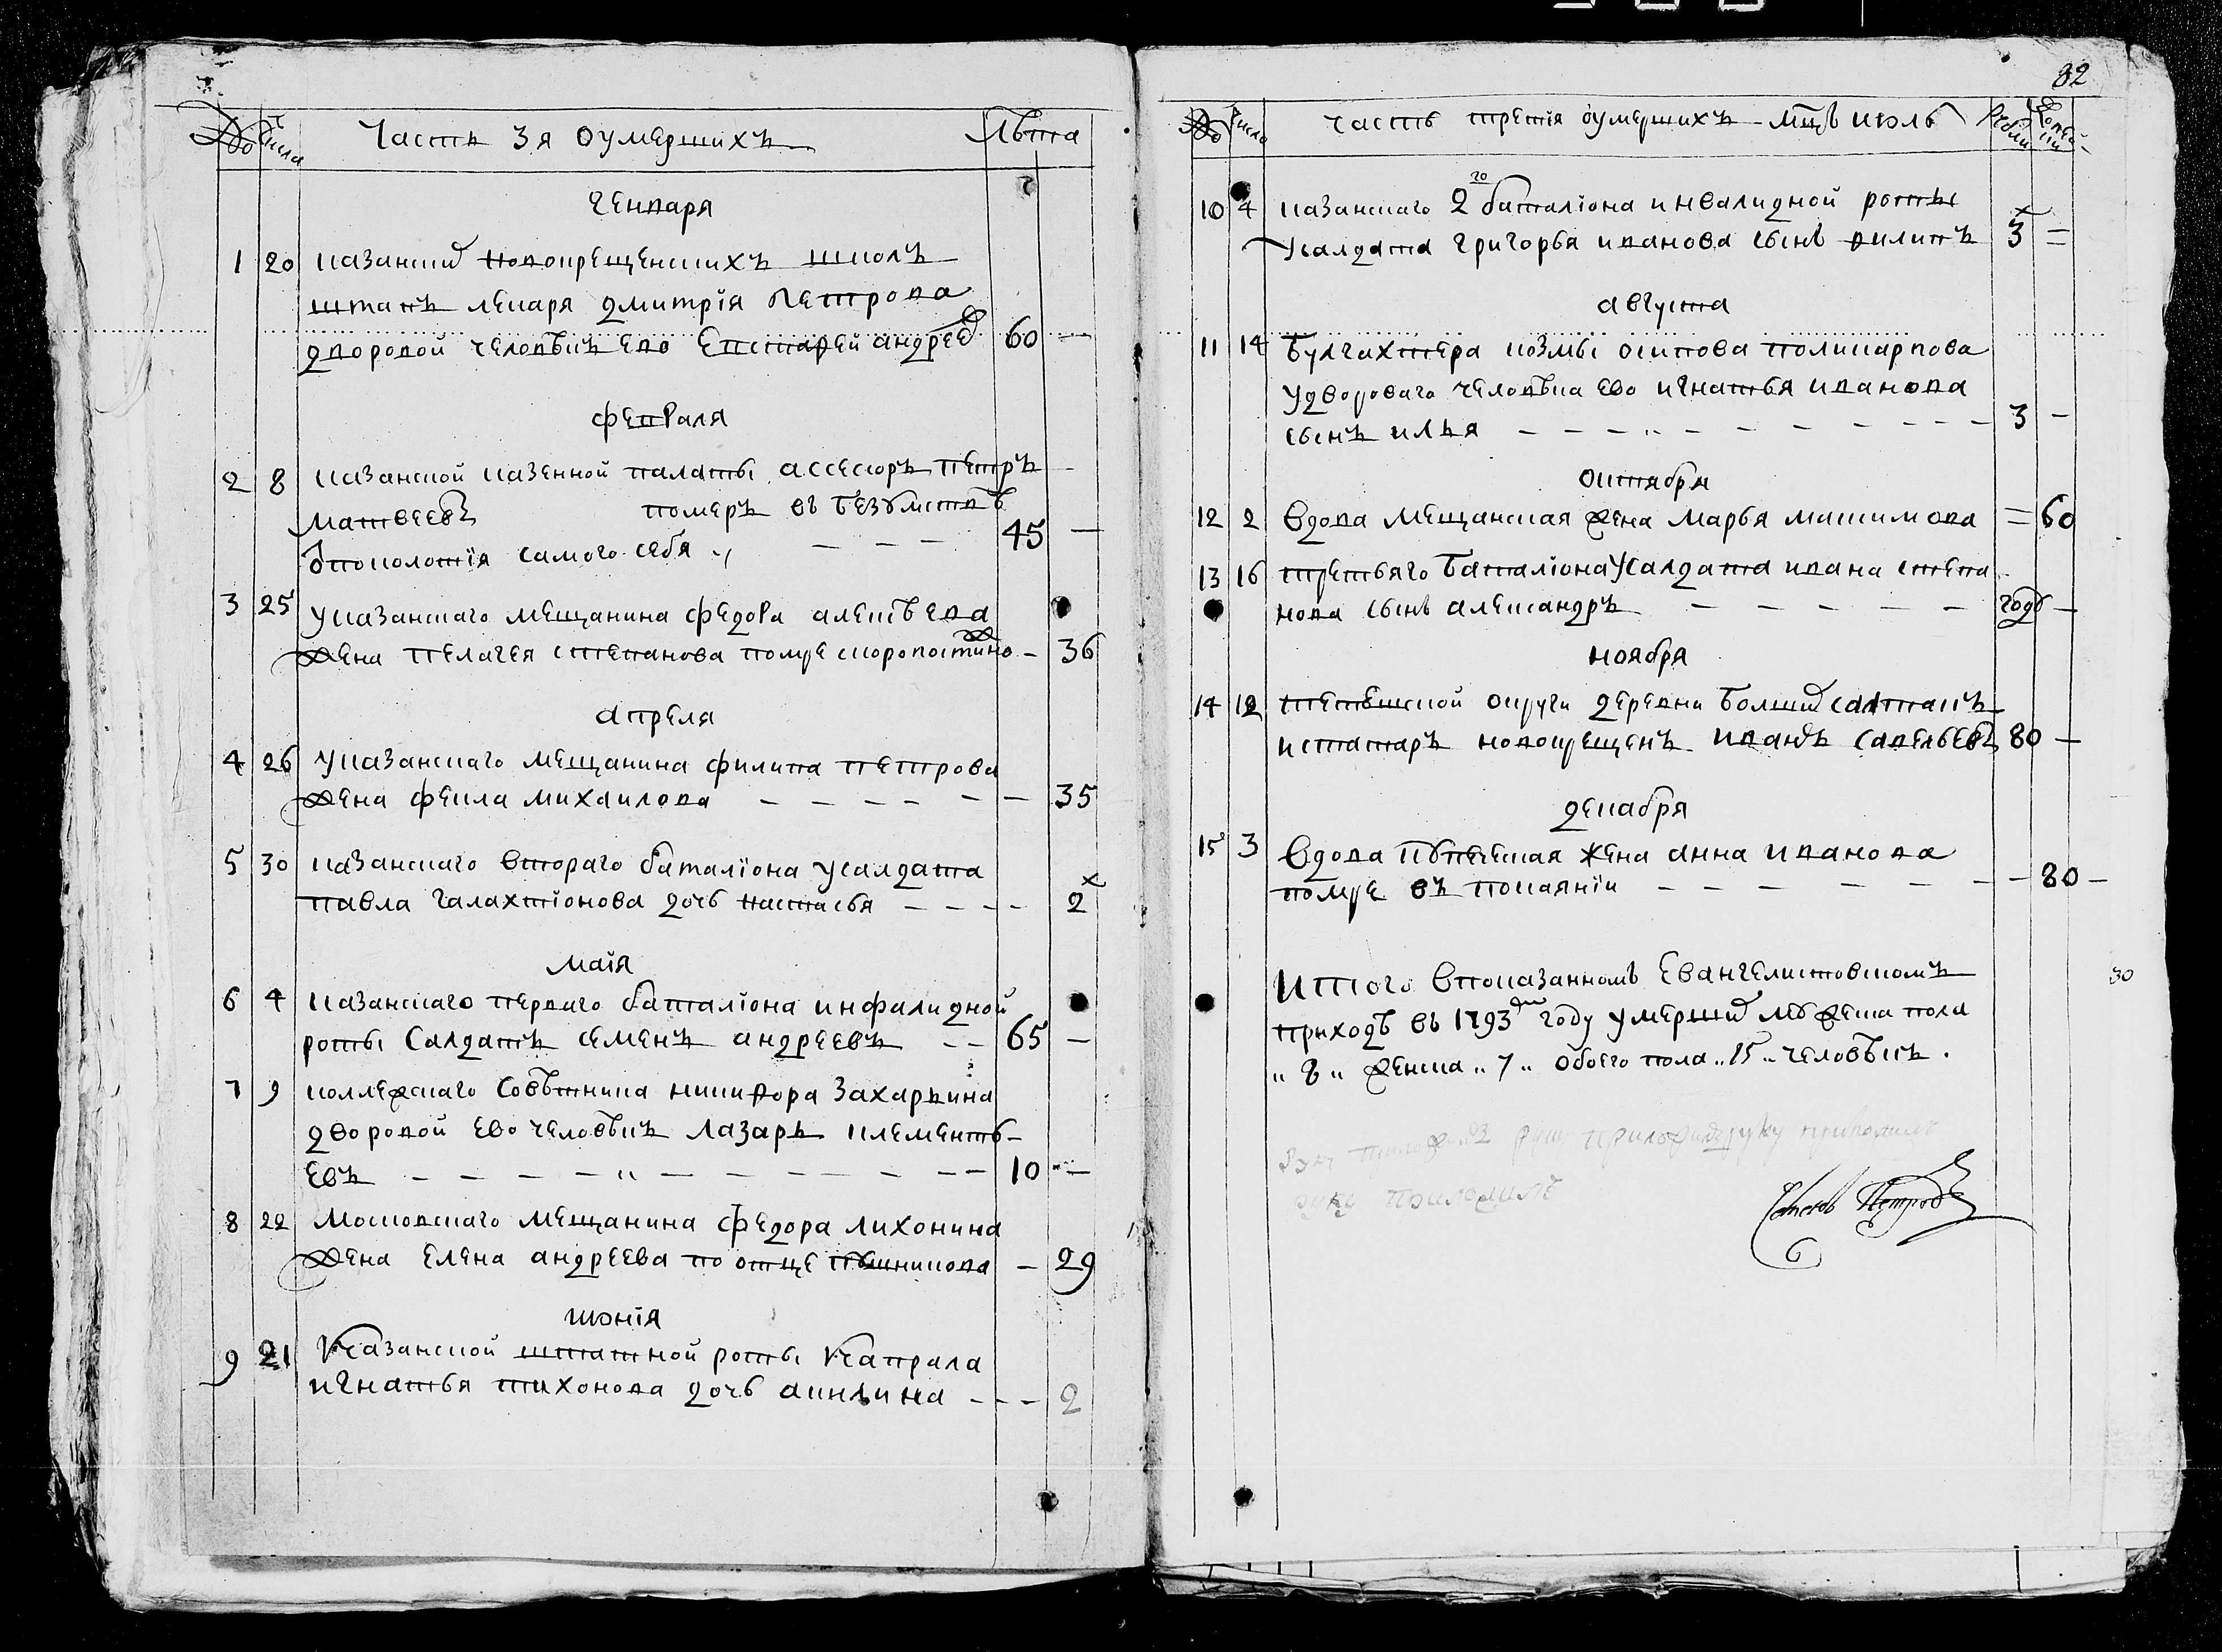 № Числа Часть 3я оумершихъ Лѣта
Генваря
1 20 казанских новокрещенскихъ школъ
штапъ лекаря Дмитрія Петрова
дворовой человѣкъ ево Евстафей андреев 60 —
Февраля
2 8 казанской казенной палаты ассесоръ Петръ
Матвеевъ померъ въ безумствѣ
отпоколотія самого себя 45 —
3 25 у казанскаго мещанина Федора алексѣева
жена Пелагея степанова помре скоропостижно — 36
апреля
4 26 у казанскаго мещанина филипа Петрова
жена фекла михаилова — 35
5 30 казанскаго втораго баталіона у салдата
павла галахтіонова дочь настасья — 2
маія
6 4 казанскаго перваго баталіона инфалидной
роты Салдатъ семенъ андреевъ — 65 —
7 9 коллежскаго Совѣтника никифора Захарьина
дворовой ево человѣкъ Лазарь клементь-
евъ — 10 —
8 22 Московскаго мещанина федора лихонина
жена Елена андреева по отце — 29
июнія
9 21 Казанской штатной роты Капрала
игнатья тихонова дочь акилина — 2
82
№ Число часть третія оумершихъ мцъ июль Рубли Копеики
10 4 казанскаго 2го баталіона инвалидной роты
у салдата григорья иванова сынъ филипъ 3 =
августа
11 14 Булгахтера козмы осипова поликарпова
у двороваго человѣка ево игнатья иванова
сынъ илья — 3 —
октября
12 2 вдова мещанская жена марья максимова = 60
13 16 третьяго баталіона У салдата ивана степа
нова сынъ александръ — годъ —
ноября
14 12 округи деревни болших
истатаръ новокрещенъ иванъ савельевъ 80 —
декабря
15 3 вдова купеческая жена анна иванова
помре въ покаяніи — 80 —
Итого впоказанномъ Евангелистовскомъ
приходѣ въ 1793 году умерших муж жеска пола
„ 8 „ женска „ 7 „ обоего пола „ 15 „ человѣкъ .
руку приложилъ
Петровъ